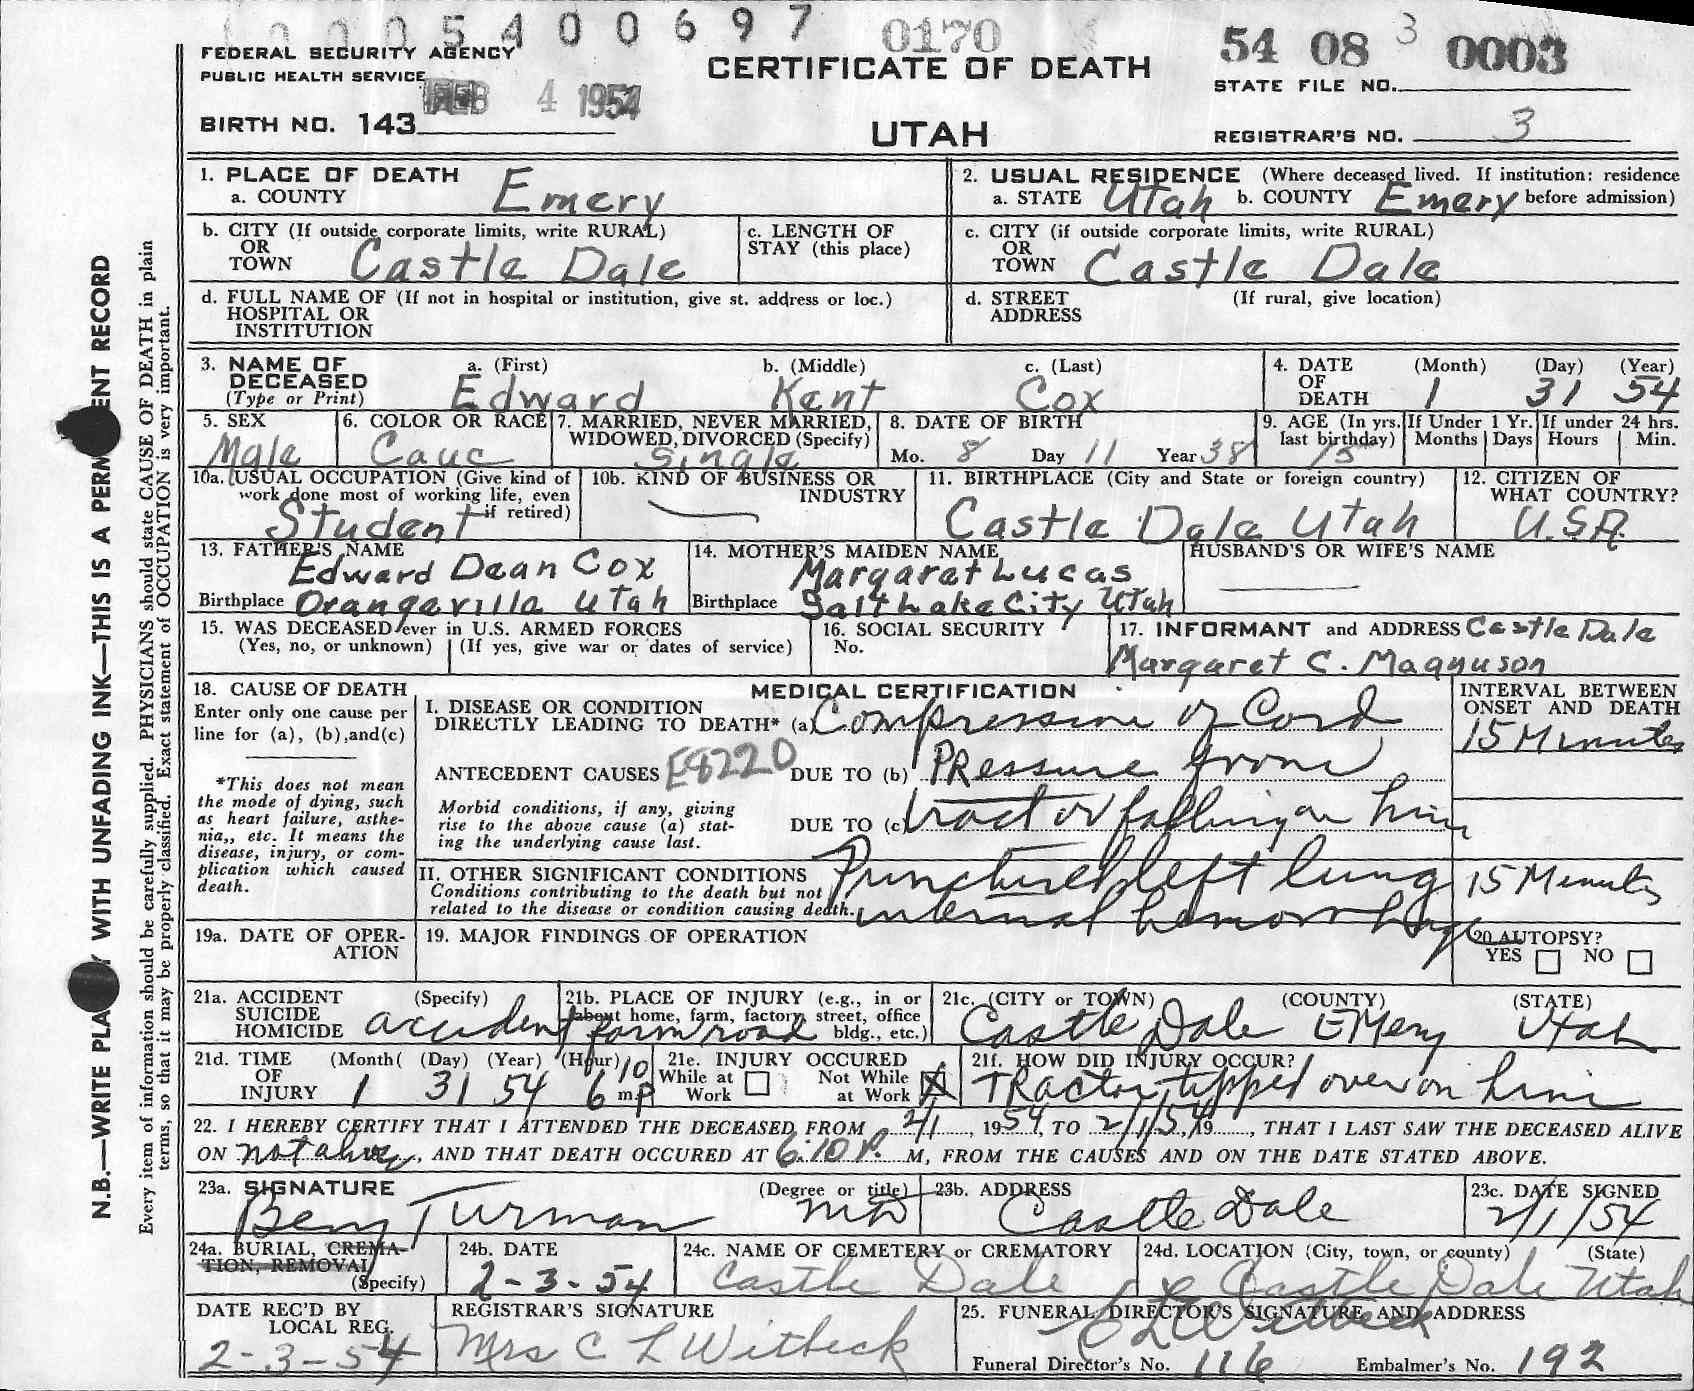 0005400697 0170 54 08 3 0003
FEDERAL SECURITY AGENCY
PUBLIC HEALTH SERVICE
CERTIFICATE OF DEATH
STATE FILE NO.
FEB 4 1954
BIRTH NO. 143
UTAH
REGISTRAR'S NO. 3
1. PLACE OF DEATH
a. COUNTY Emery
2. USUAL RESIDENCE (Where deceased lived. If institution: residence
a. STATE Utah b. COUNTY Emery before admission)
b. CITY (If outside corporate limits, write RURAL)
OR
TOWN Castle Dale
c. LENGTH OF
STAY (this place)
c. CITY (if outside corporate limits, write RURAL)
OR
TOWN Castle Dale
d. FULL NAME OF (If not in hospital or institution, give st. address or loc.)
HOSPITAL OR
INSTITUTION
d. STREET (If rural, give location)
ADDRESS
3. NAME OF a. (First) b. (Middle) c. (Last)
DECEASED
(Type or Print) Edward Kent Cox
4. DATE (Month) (Day) (Year)
OF
DEATH 1 31 54
5. SEX
Male
6. COLOR OR RACE
Cauc
7. MARRIED, NEVER MARRIED,
WIDOWED, DIVORCED (Specify)
Single
8. DATE OF BIRTH
Mo. 8 Day 11 Year 38
9. AGE (In yrs.
last birthday)
15
If Under 1 Yr.
Months Days
If under 24 hrs.
Hours Min.
10a. USUAL OCCUPATION (Give kind of
work done most of working life, even
if retired)
Student
10b. KIND OF BUSINESS OR
INDUSTRY
11. BIRTHPLACE (City and State or foreign country)
Castle Dale Utah
12. CITIZEN OF
WHAT COUNTRY?
U.S.A.
13. FATHER'S NAME
Edward Dean Cox
Birthplace Orangeville Utah
14. MOTHER'S MAIDEN NAME
Margaret Lucas
Birthplace Salt Lake City Utah
HUSBAND'S OR WIFE'S NAME
15. WAS DECEASED ever in U.S. ARMED FORCES
(Yes, no, or unknown) (If yes, give war or dates of service)
16. SOCIAL SECURITY
No.
17. INFORMANT and ADDRESS Castle Dale
Margaret C. Magnuson
18. CAUSE OF DEATH
Enter only one cause per
line for (a), (b), and(c)
*This does not mean
the mode of dying, such
as heart failure, asthe-
nia,, etc. It means the
disease, injury, or com-
plication which caused
death.
MEDICAL CERTIFICATION
I. DISEASE OR CONDITION
DIRECTLY LEADING TO DEATH* (a) Compression of Cord
ANTECEDENT CAUSES E8220 DUE TO (b) Pressure from
Morbid conditions, if any, giving
rise to the above cause (a) stat-
ing the underlying cause last.
DUE TO (c) tractor falling on him
II. OTHER SIGNIFICANT CONDITIONS Punctured left lung
Conditions contributing to the death but not
related to the disease or condition causing death. internal hemorrhage
INTERVAL BETWEEN
ONSET AND DEATH
15 Minutes
15 Minutes
19a. DATE OF OPER-
ATION
19. MAJOR FINDINGS OF OPERATION
20 AUTOPSY?
YES NO
21a. ACCIDENT (Specify)
SUICIDE
HOMICIDE accident
21b. PLACE OF INJURY (e.g., in or
about home, farm, factory, street, office
bldg., etc.)
farm road
21c. (CITY or TOWN) (COUNTY) (STATE)
Castle Dale Emery Utah
21d. TIME (Month( (Day) (Year) (Hour)
OF
INJURY 1 31 54 6 10 m P
21e. INJURY OCCURED
While at Work Not While at Work X
21f. HOW DID INJURY OCCUR?
Tractor tipped over on him
22. I HEREBY CERTIFY THAT I ATTENDED THE DECEASED FROM 2/1, 1954, TO 2/1/54, 19, THAT I LAST SAW THE DECEASED ALIVE
ON not alive, AND THAT DEATH OCCURED AT 6:10 P. M, FROM THE CAUSES AND ON THE DATE STATED ABOVE.
23a. SIGNATURE (Degree or title)
Benj Turman MD
23b. ADDRESS
Castle Dale
23c. DATE SIGNED
2/1/54
24a. BURIAL, CREMA-
TION, REMOVAL
(Specify)
24b. DATE
2-3-54
24c. NAME OF CEMETERY or CREMATORY
Castle Dale
24d. LOCATION (City, town, or county) (State)
Castle Dale Utah
DATE REC'D BY
LOCAL REG.
2-3-54
REGISTRAR'S SIGNATURE
Mrs C L Witbeck
25. FUNERAL DIRECTOR'S SIGNATURE AND ADDRESS
C L Witbeck
Funeral Director's No. 116 Embalmer's No. 192
N.B.—WRITE WITH UNFADING INK—THIS IS A RECORD
Every item of information should be carefully supplied. PHYSICIANS should state CAUSE OF DEATH in plain
terms, so that it may be properly classified. Exact statement of OCCUPATION is very important.